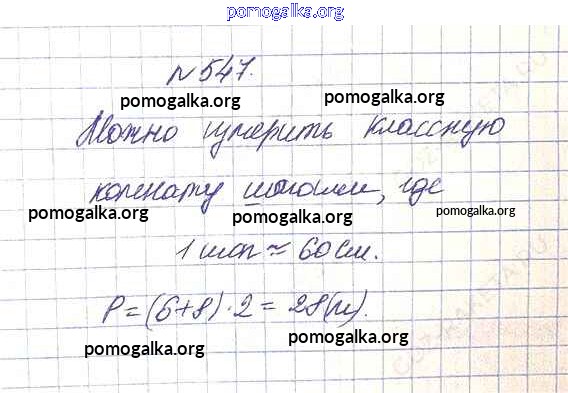 pomogalka.org
N 547.
pomogalka.org pomogalka.org
Можно измерить классную
комнату шагами, где
pomogalka.org pomogalka.org pomogalka.org
1 шаг ≈ 60 см.
P = (6+8) · 2 = 28 (м).
pomogalka.org pomogalka.org